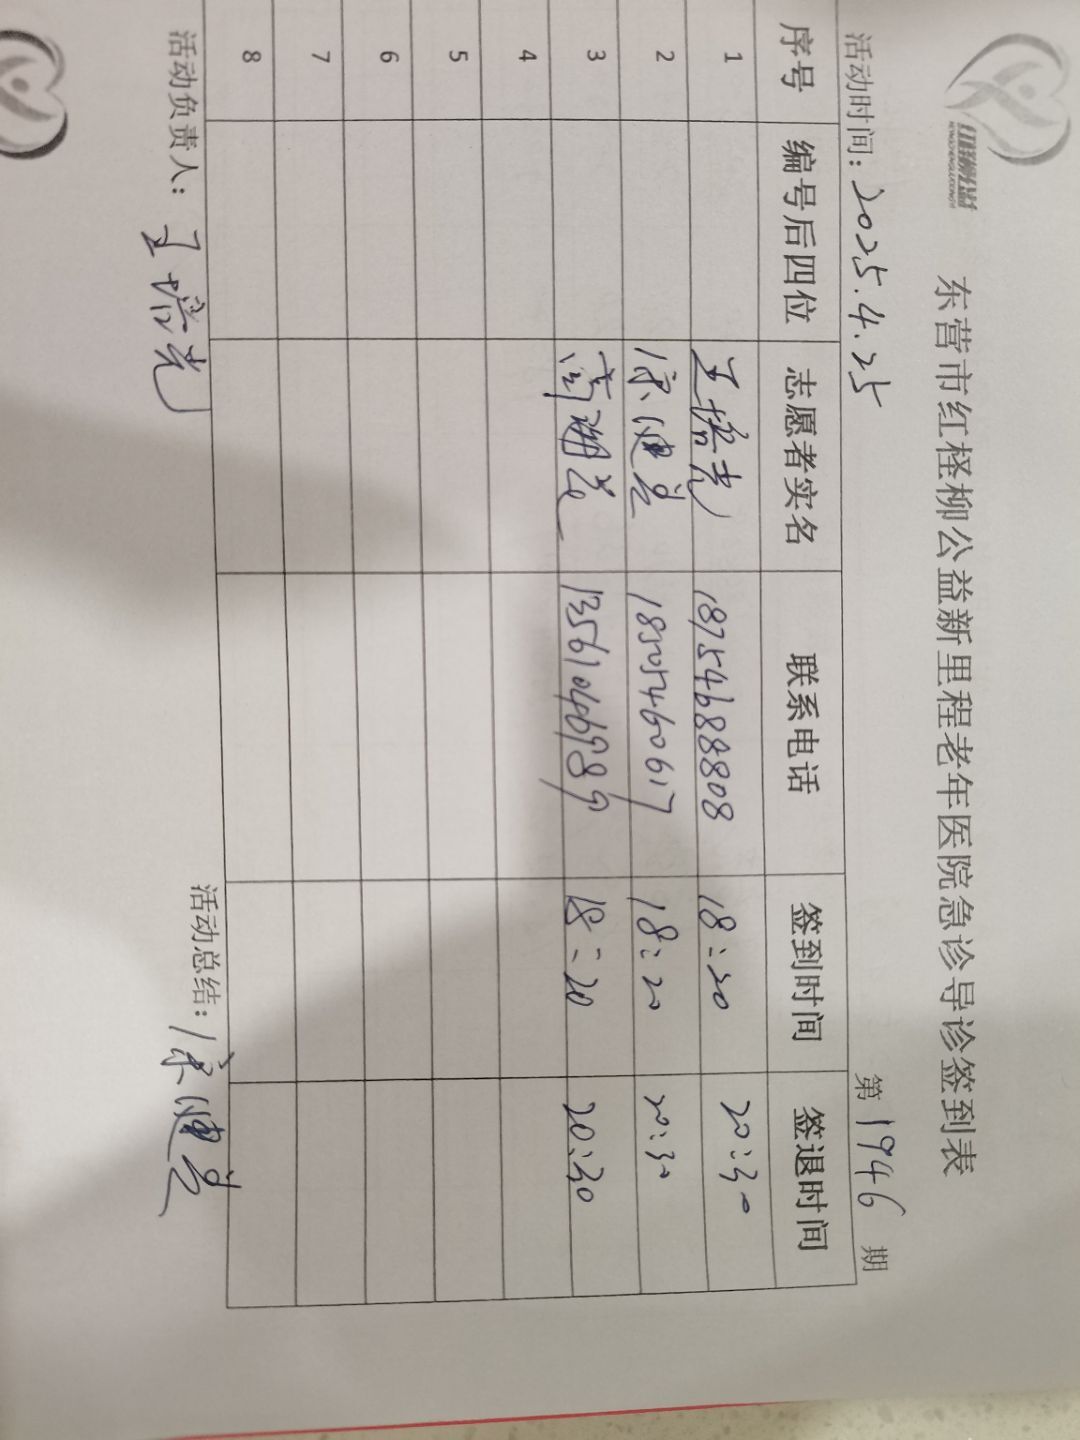 东营市红柽柳公益新里程老年医院急诊导诊签到表
活动时间：2025.4.25 第1946期
序号 编号后四位 志愿者实名 联系电话 签到时间 签退时间
1 王培光 18754688808 18:20 20:30
2 宋健美 18505460617 18:20 20:30
3 13561046989 18:20 20:30
4
5
6
7
8
活动负责人：王培光 活动总结：宋健美